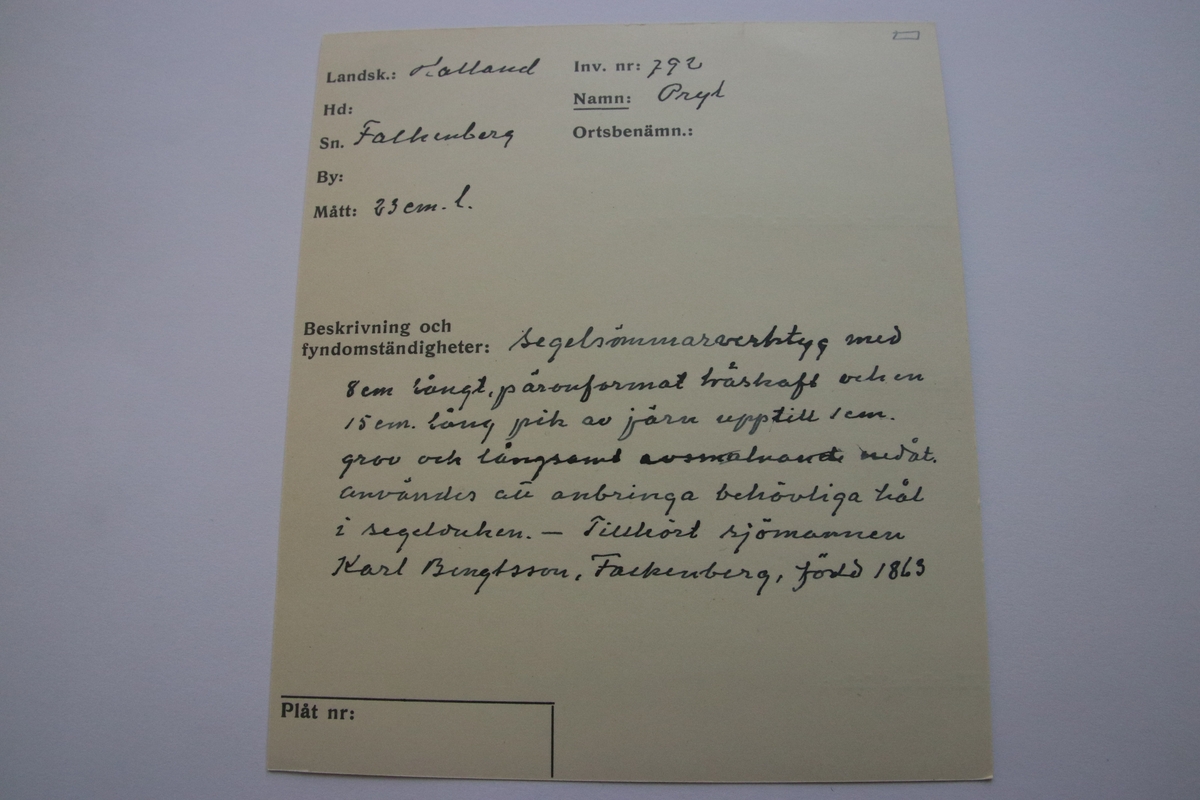 Landsk.: Halland
Inv. nr: 792
Hd:
Namn: Pryl
Sn. Falkenberg
Ortsbenämn.:
By:
Mått: 23 cm. l.
Beskrivning och
fyndomständigheter: Segelsömmarverktyg med
8 cm långt, päronformat träskaft och en
15 cm. lång pik av järn upptill 1 cm.
grov och långsamt avsmalnande nedåt.
Användes att anbringa behövliga hål
i segelduken. — Tillhört sjömannen
Karl Bengtsson, Falkenberg, född 1863
Plåt nr: